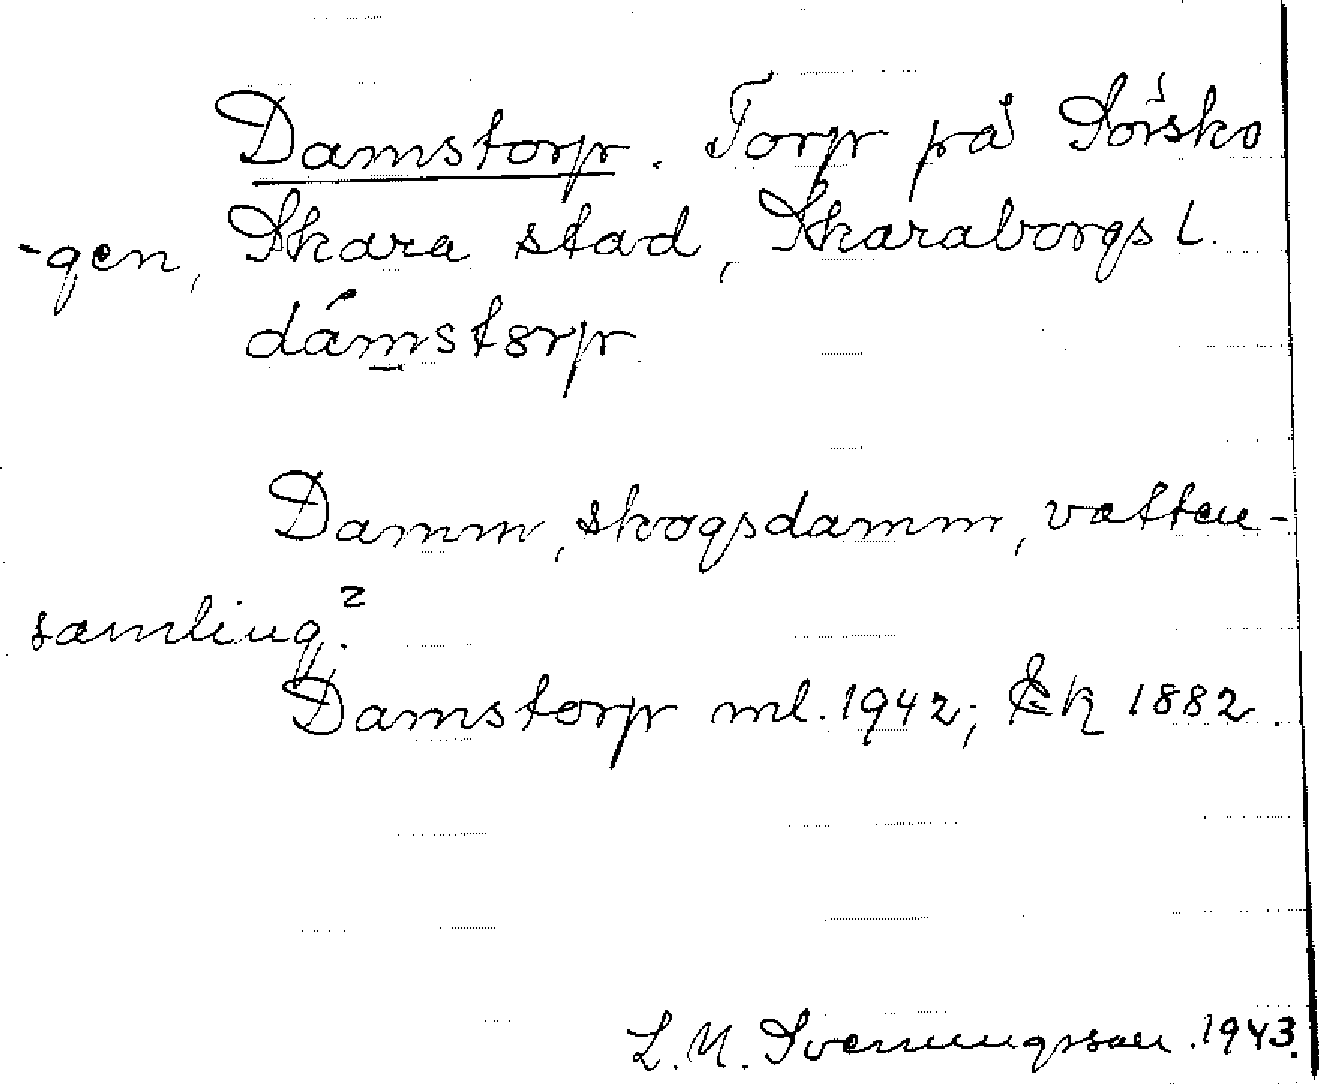 Damstorp. Torp på Sörsko
-gen, Skara stad, Skaraborgs l.
dámstorp
Damm, skogsdamm, vatten-
samling?
Damstorp ml. 1942; Ek 1882.
L. M. Svenungsson. 1943.